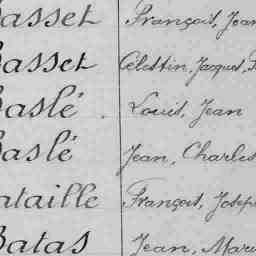 Basset François, Jean
Basset Célestin, Jacques,
Baslé Louis, Jean
Baslé Jean, Charles
Bataille François, Joseph
Batas Jean, Marie